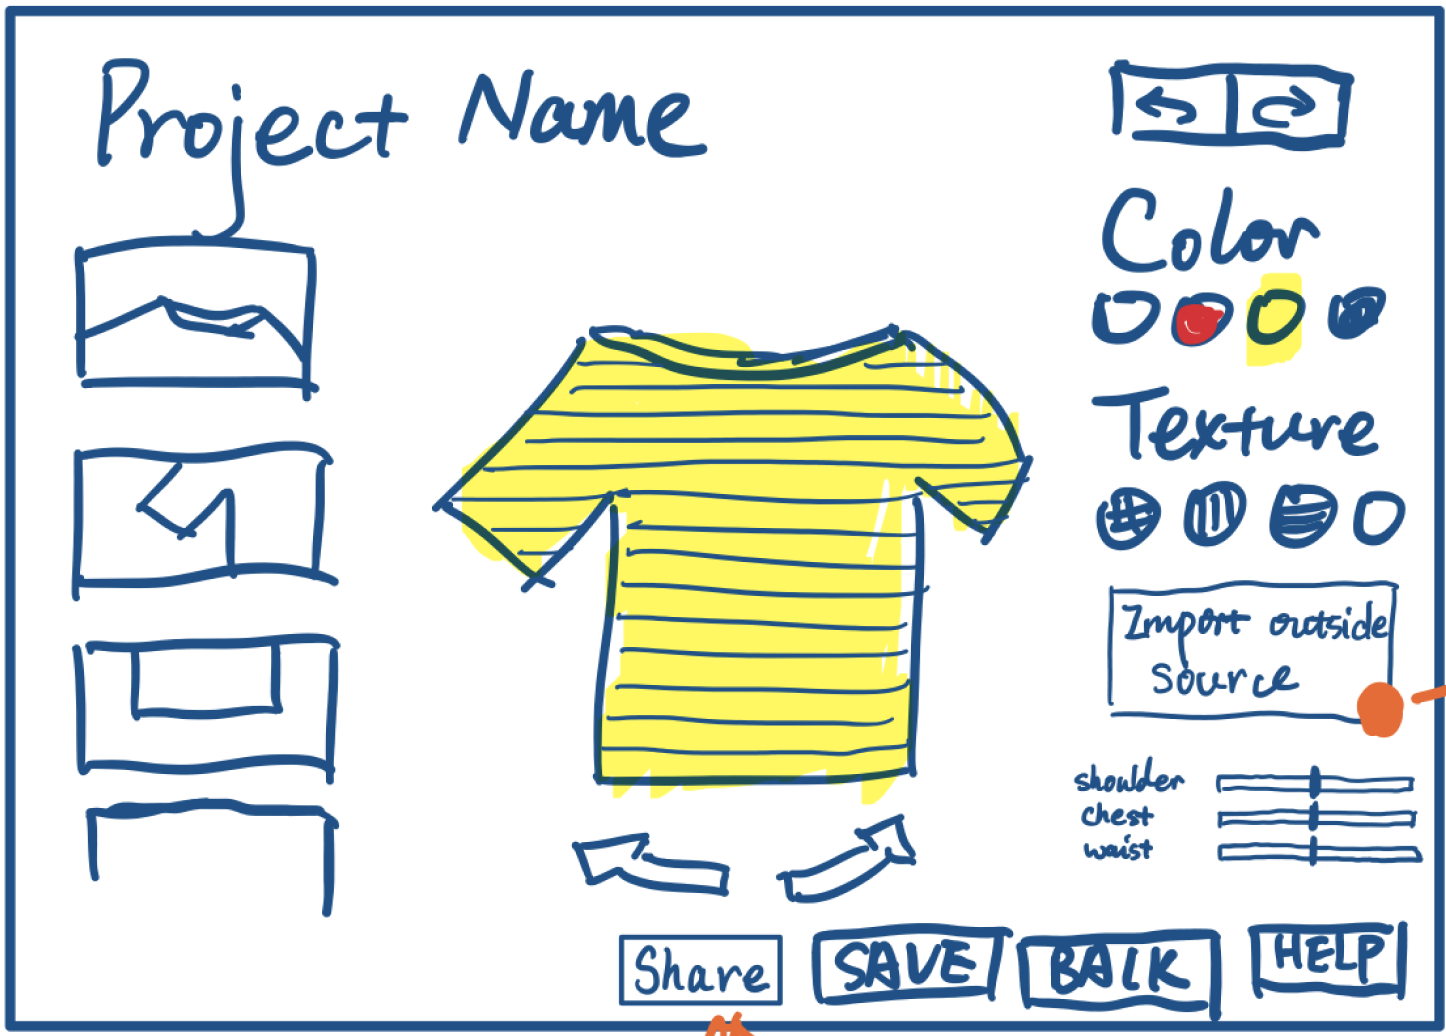 Project Name
Color
Texture
Import outside
source
shoulder
chest
waist
Share
SAVE
BACK
HELP